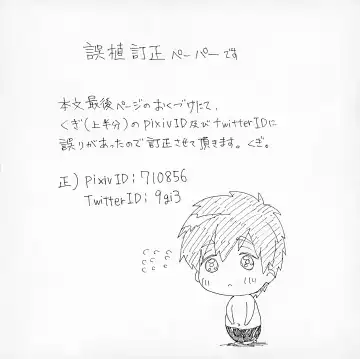 誤植訂正ペーパーです
本文最後ページのおくづけにて、
くぎ(上半分)のpixivID及びtwitterIDに
誤りがあったので訂正させて頂きます。くぎ。
正) pixivID:710856
TwitterID:9gi3